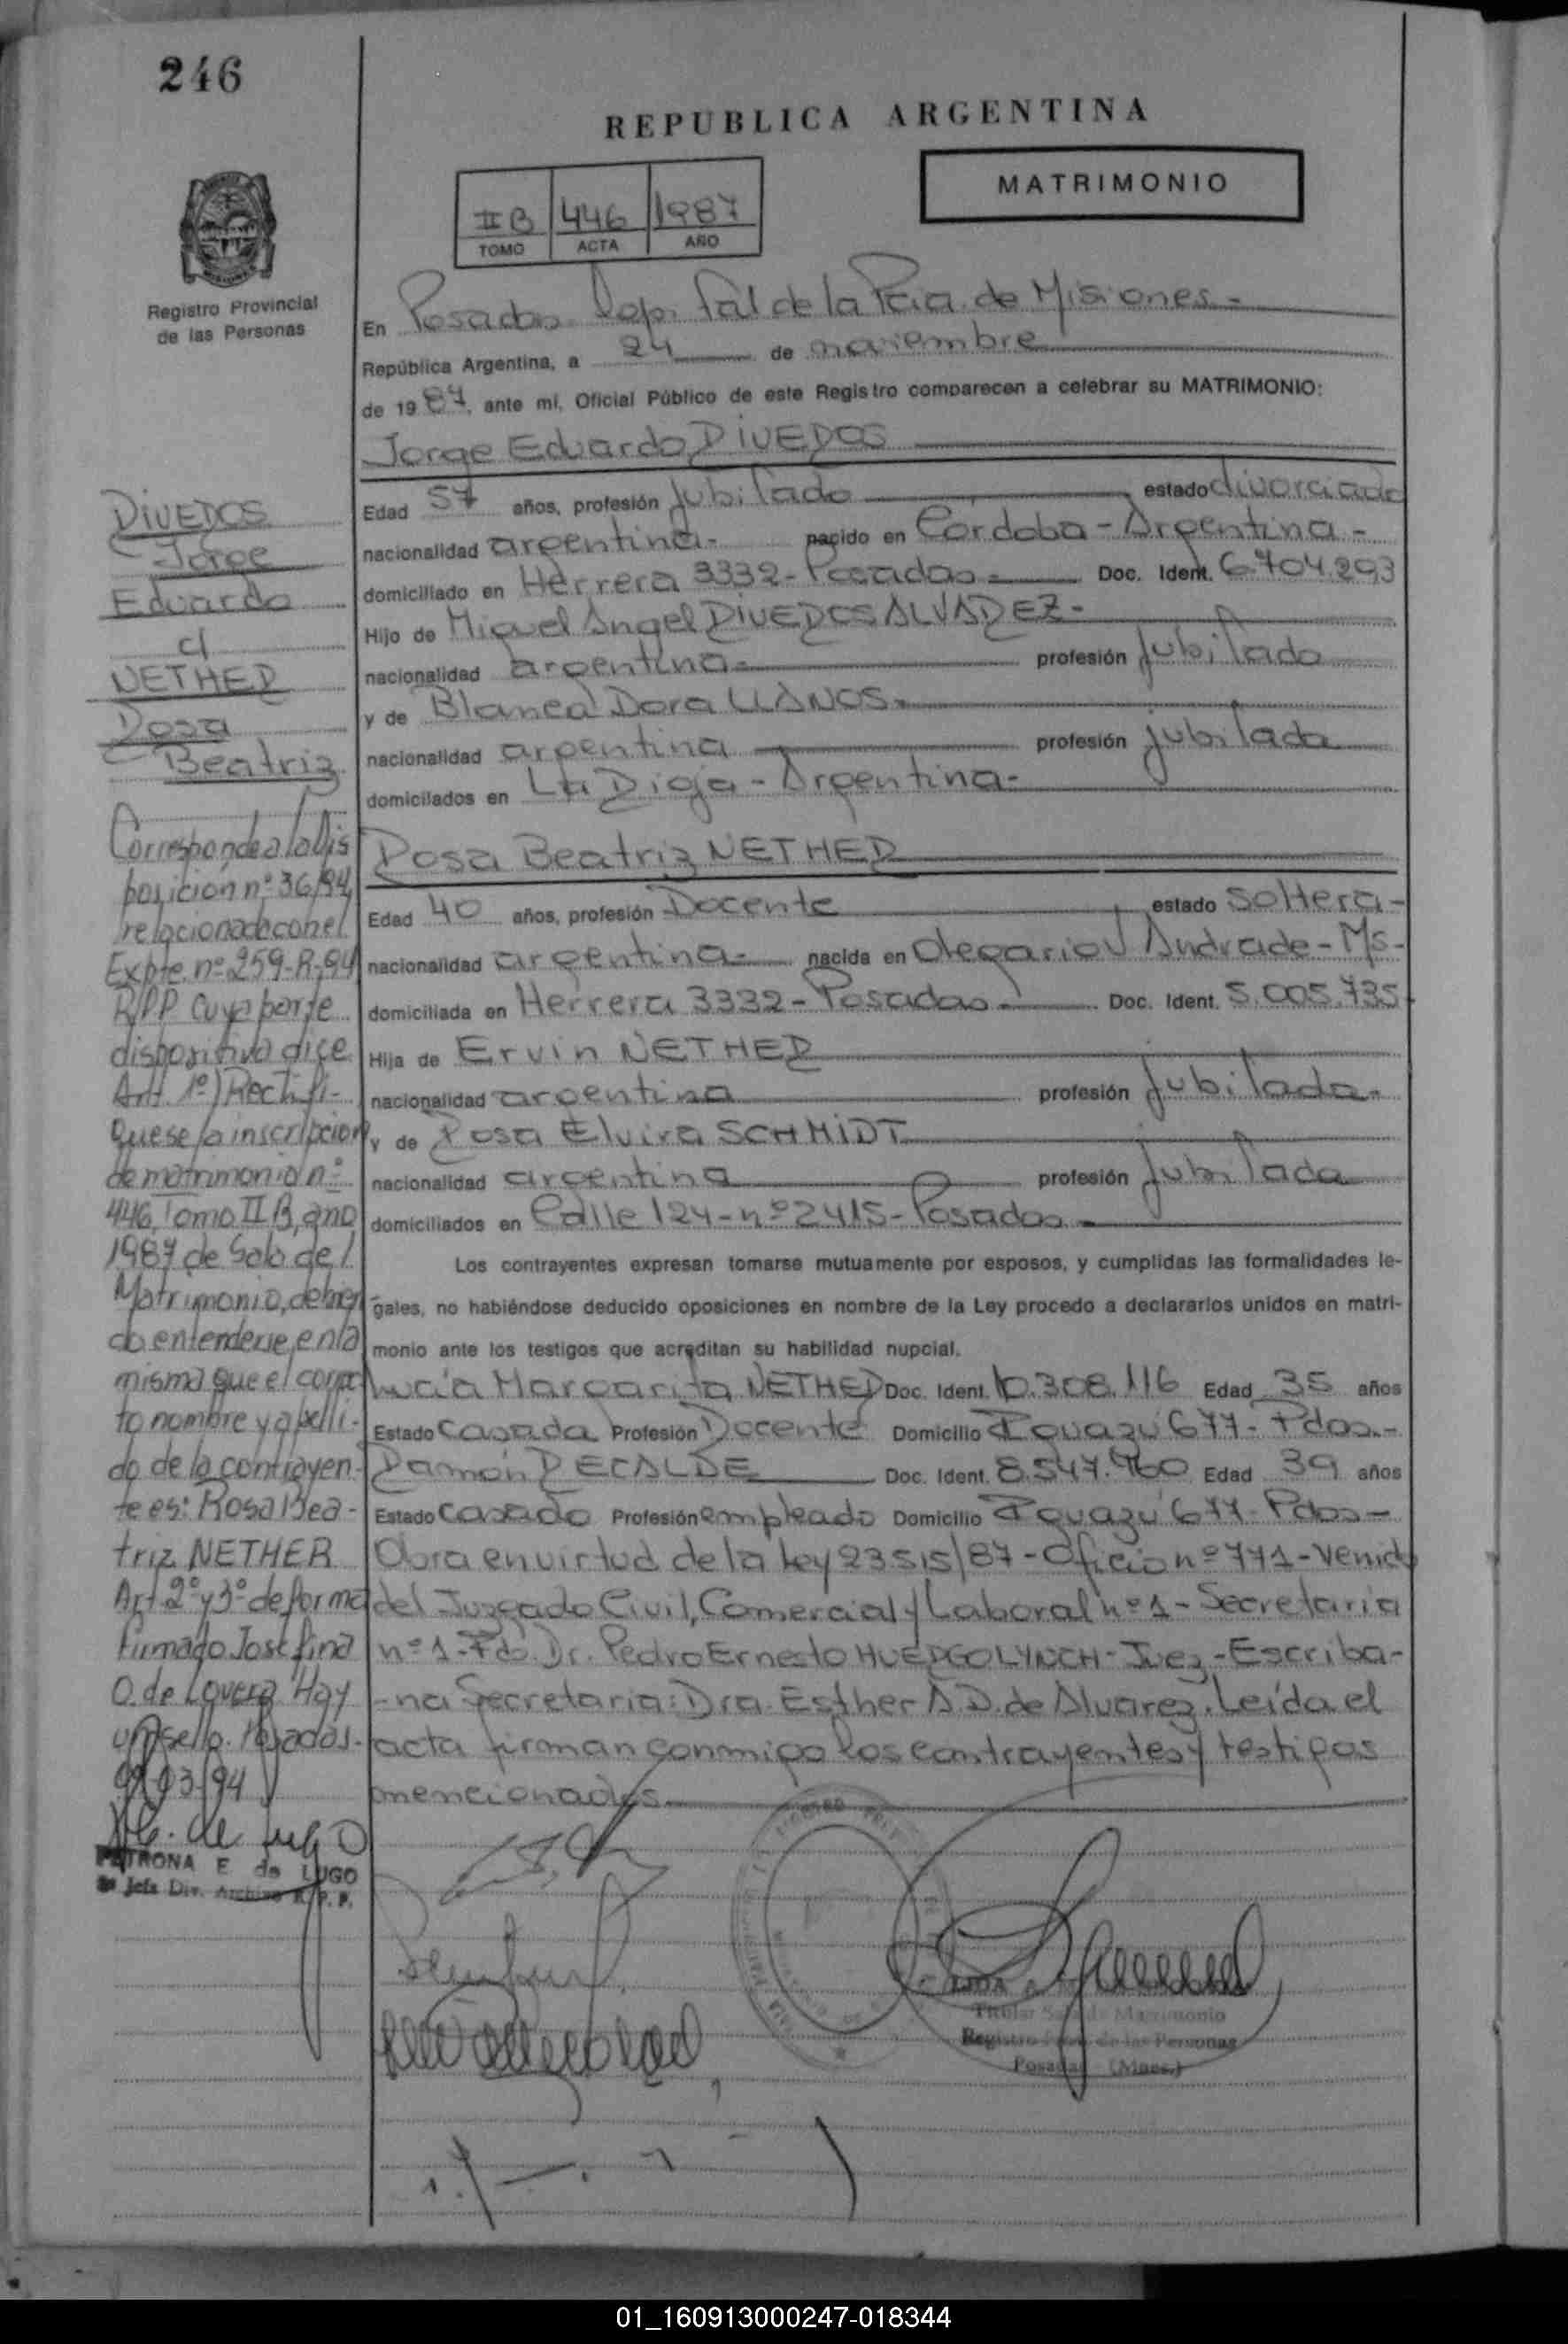 246
REPUBLICA ARGENTINA
MATRIMONIO
II B 446 1987
TOMO ACTA AÑO
Registro Provincial
de las Personas
En Posadas Cap. tal de la Pcia. de Misiones -
República Argentina, a 24 de noviembre
de 1987, ante mí, Oficial Público de este Registro comparecen a celebrar su MATRIMONIO:
Jorge Eduardo RIVEROS
Edad 57 años, profesión Jubilado estado divorciado
nacionalidad argentina - nacido en Córdoba - Argentina -
domiciliado en Herrera 3332 - Posadas - Doc. Ident. 6.704.293
Hijo de Miguel Angel RIVEROS ALVAREZ -
nacionalidad argentina - profesión Jubilado
y de Blanca Dora LLANOS -
nacionalidad argentina profesión jubilada
domicilados en La Rioja - Argentina -
Rosa Beatriz NETHER
Edad 40 años, profesión Docente estado soltera -
nacionalidad argentina - nacida en Olegario V. Andrade - Ms -
domiciliada en Herrera 3332 - Posadas - Doc. Ident. 5.005.735
Hija de Ervin NETHER
nacionalidad argentina profesión Jubilado -
y de Rosa Elvira SCHMIDT
nacionalidad argentina profesión Jubilada
domiciliados en Calle 124 - nº 2415 - Posadas -
Los contrayentes expresan tomarse mutuamente por esposos, y cumplidas las formalidades le-
gales, no habiéndose deducido oposiciones en nombre de la Ley procedo a declararlos unidos en matri-
monio ante los testigos que acreditan su habilidad nupcial.
Lucía Margarita NETHER Doc. Ident. 10.308.116 Edad 35 años
Estado Casada Profesión Docente Domicilio Iguazú 677 - Pdas. -
Ramón RECALDE Doc. Ident. 8.547.960 Edad 39 años
Estado Casado Profesión empleado Domicilio Iguazú 677 - Pdas -
Obra en virtud de la Ley 23515/87 - Oficio nº 771 - Venido
del Juzgado Civil, Comercial y Laboral nº 1 - Secretaria
nº 1 - Fdo. Dr. Pedro Ernesto HUERGO LYNCH - Juez - Escriba-
- na Secretaria: Dra. Esther A. R. de Alvarez. Leída el
acta firman conmigo los contrayentes y testigos
mencionados
Titular Sala de Matrimonio
Registro Prov. de las Personas
Posadas (Mnes.)
RIVEROS
Jorge
Eduardo
c/
NETHER
Rosa
Beatriz
Corresponde a la Dis
posición nº 36/94
relacionada con el
Expte. nº 259-R-94
RPP cuya parte
dispositiva dice
Art. 1º) Rectifi-
quese la inscripcion
de matrimonio nº
446, Tomo II B, año
1987 de Sala de l
Matrimonio, debien
do entenderse en la
misma que el correc
to nombre y apelli-
do de la contrayen-
te es: Rosa Bea-
triz NETHER
Art 2º y 3º de forma
firmado Josefina
O. de Lovera Hay
un sello. Posadas-
03/94
de Lugo
PETRONA E de LUGO
Jefa Div. Archivo R. P. P.
01_160913000247-018344